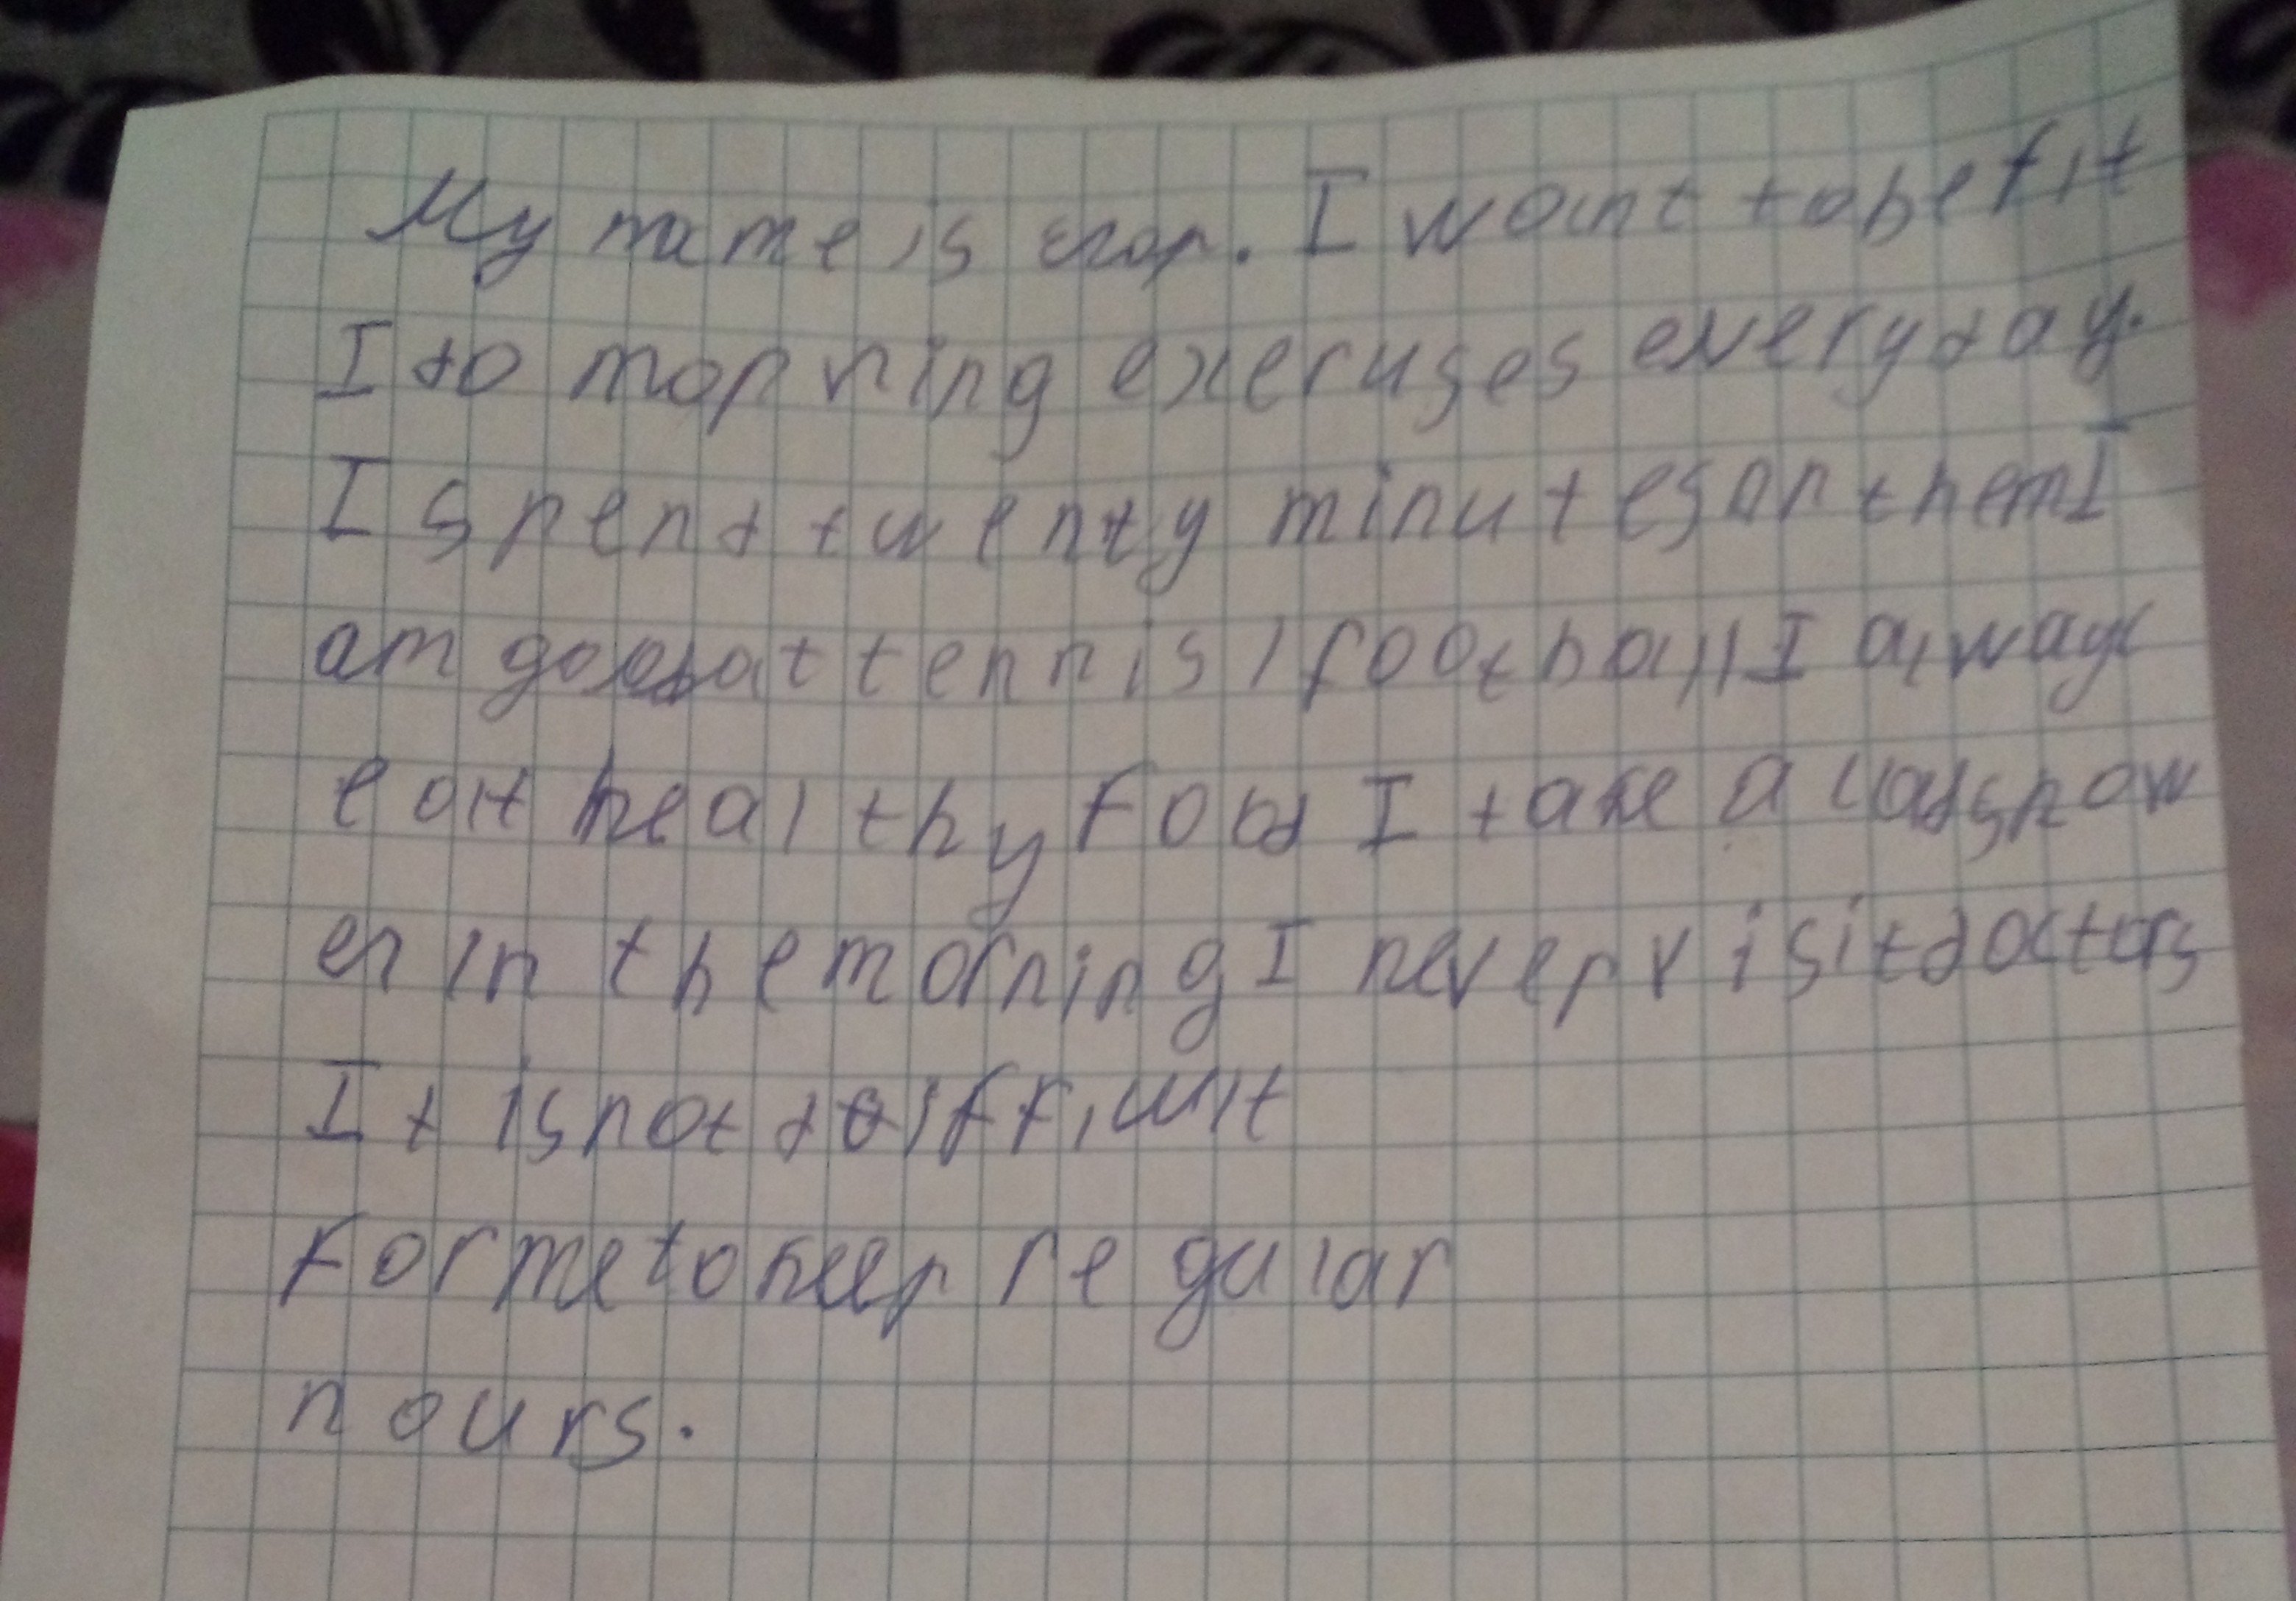 My name is егор. I want to be fit
I do morning exercises everyday.
I spend twenty minutes on them I
am good at tennis, football I always
eat healthy food I take a cold show
er in the morning I never visit doctors
It is not difficult
for me to keep regular
hours.